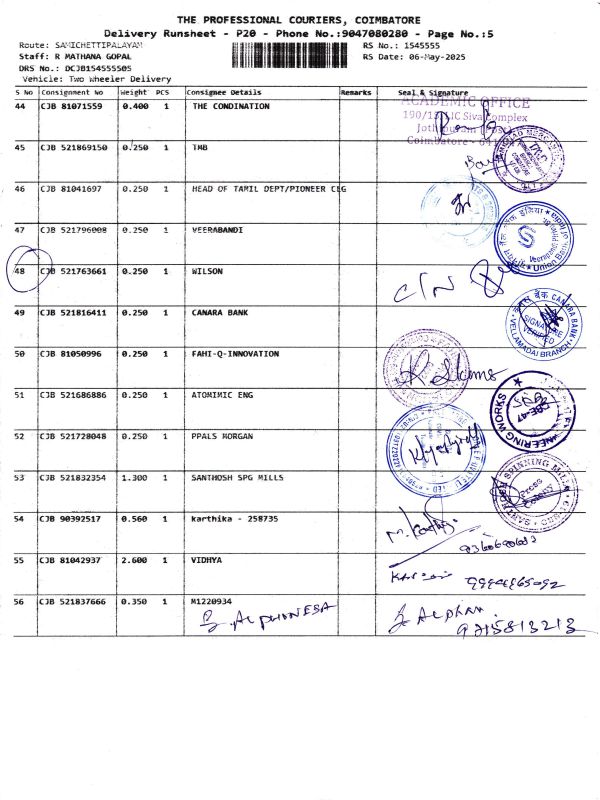 THE PROFESSIONAL COURIERS, COIMBATORE
Delivery Runsheet - P20 - Phone No.:9047080280 - Page No.:5
Route: SAMICHETTIPALAYAM RS No.: 1545555
Staff: R MATHANA GOPAL RS Date: 06-May-2025
DRS No.: DCJB154555505
Vehicle: Two Wheeler Delivery
S No Consignment No Weight PCS Consignee Details Remarks Seal & Signature
44 CJB 81071559 0.400 1 THE CONDINATION
ACADEMIC OFFICE
45 CJB 521869150 0.250 1 TMB
46 CJB 81041697 0.250 1 HEAD OF TAMIL DEPT/PIONEER CLG
47 CJB 521796008 0.250 1 VEERABANDI
Union Bank
48 CJB 521763661 0.250 1 WILSON
C/N
49 CJB 521816411 0.250 1 CANARA BANK
केनरा बैंक CANARA BANK
SIGNATURE VERIFIED
VELLAMADAI BRANCH
50 CJB 81050996 0.250 1 FAHI-Q-INNOVATION
51 CJB 521686886 0.250 1 ATOMIMIC ENG
NEERING WORKS
52 CJB 521728048 0.250 1 PPALS MORGAN
53 CJB 521832354 1.300 1 SANTHOSH SPG MILLS
SPINNING MILLS
54 CJB 90392517 0.560 1 karthika - 258735
55 CJB 81042937 2.600 1 VIDHYA
56 CJB 521837666 0.350 1 M1220934
ALPHONESA
9715813213